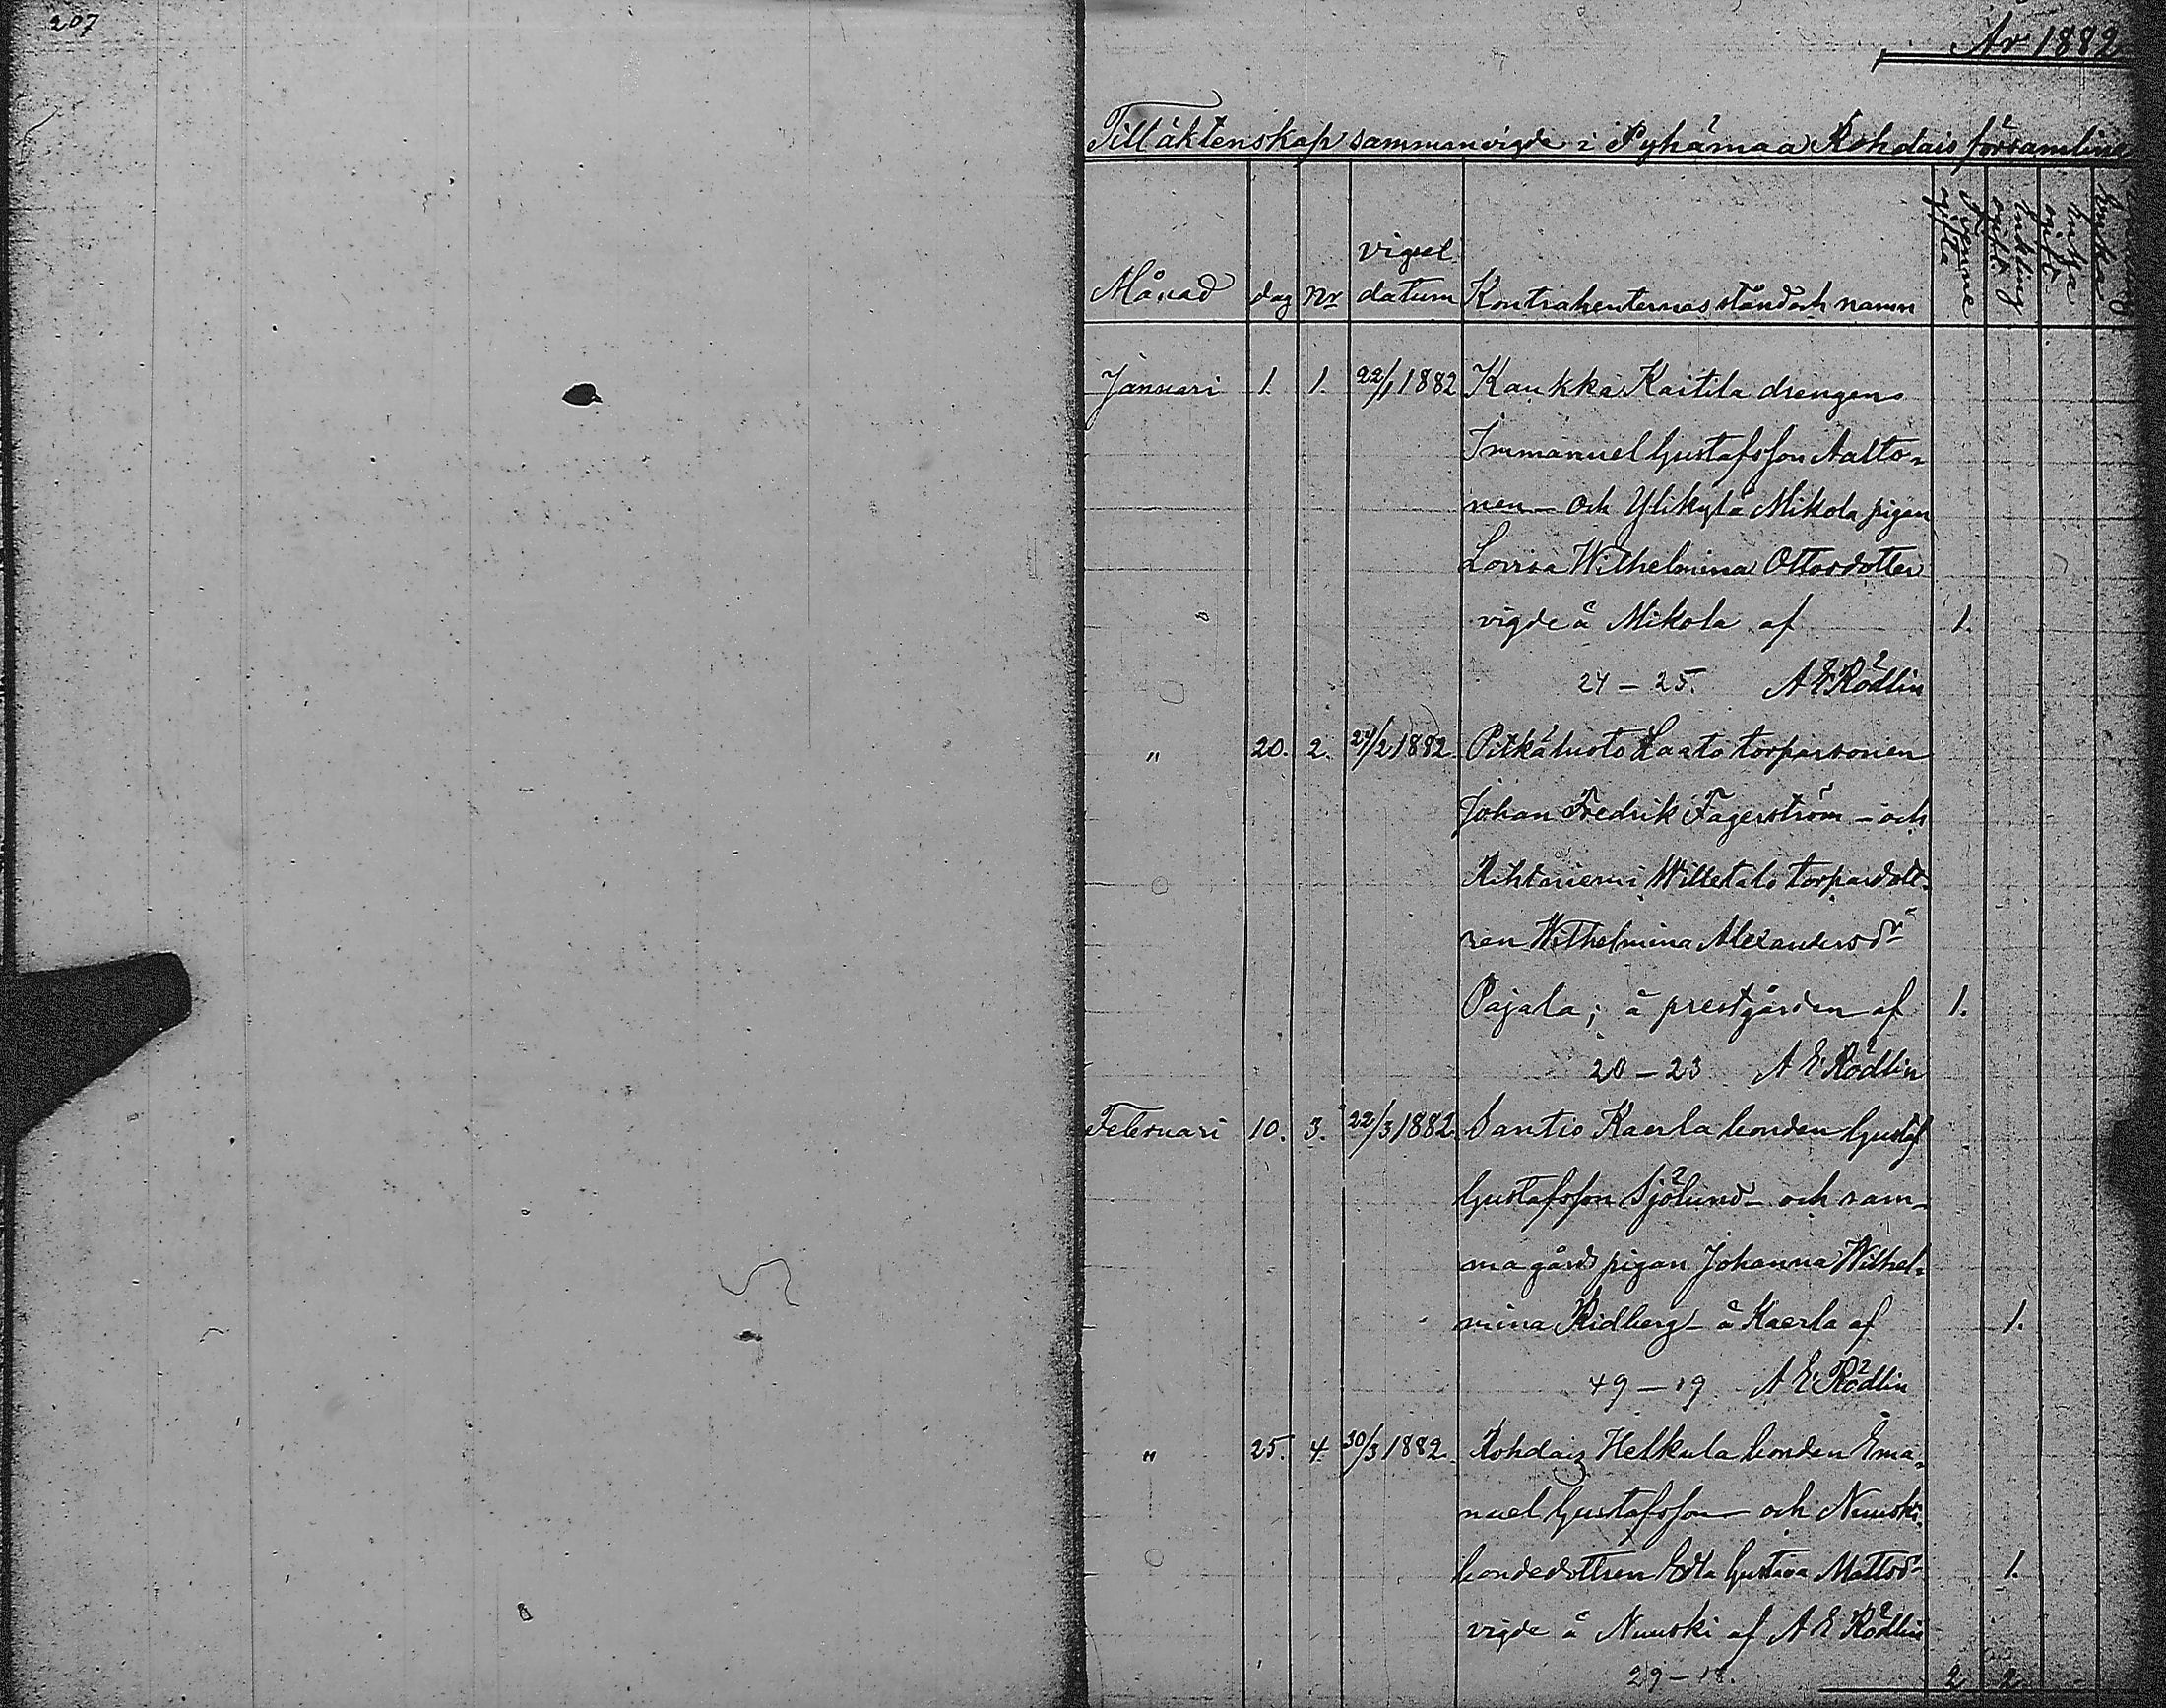 207
År 1882
Till äktenskap sammanvigde i Pyhämaa Rohdais församling
Månad dag Nr vigsel datum Kontrahenternas stånd och namn
Januari 1. 1. 22/1 1882 Kaukka Kaitila drengen
Immanuel Gustafsson Aalto-
nen – och Ylikylä Mikola pigan
Lovisa Wilhelmina Ottosdotter
vigde å Mikola af 1.
24 – 25. A E Rödlin
" 20. 2. 24/2 1882. Pitkäluoto Laato torparsonen
Johan Fredrik Fagerström – och
Rihtniemi Willetalo torpardott-
ren Wilhelmina Alexandersdr
Pajala; å prestgården af 1.
20 – 23 A E Rödlin
Februari 10. 3. 22/3 1882. Santio Kaerla bonden Gustaf
Gustafsson Sjölund – och sam-
ma gårds pigan Johanna Wilhel-
mina Ridberg – å Kaerla af 1.
49 – 19. A E Rödlin
" 25. 4. 30/3 1882. Rohdais Helkula bonden Ema-
nuel Gustafsson – och Nuuski
bondedottren Edla Gustava Mattsdr 1.
vigde å Nuuski af A E Rödlin
29 – 18. 2 2